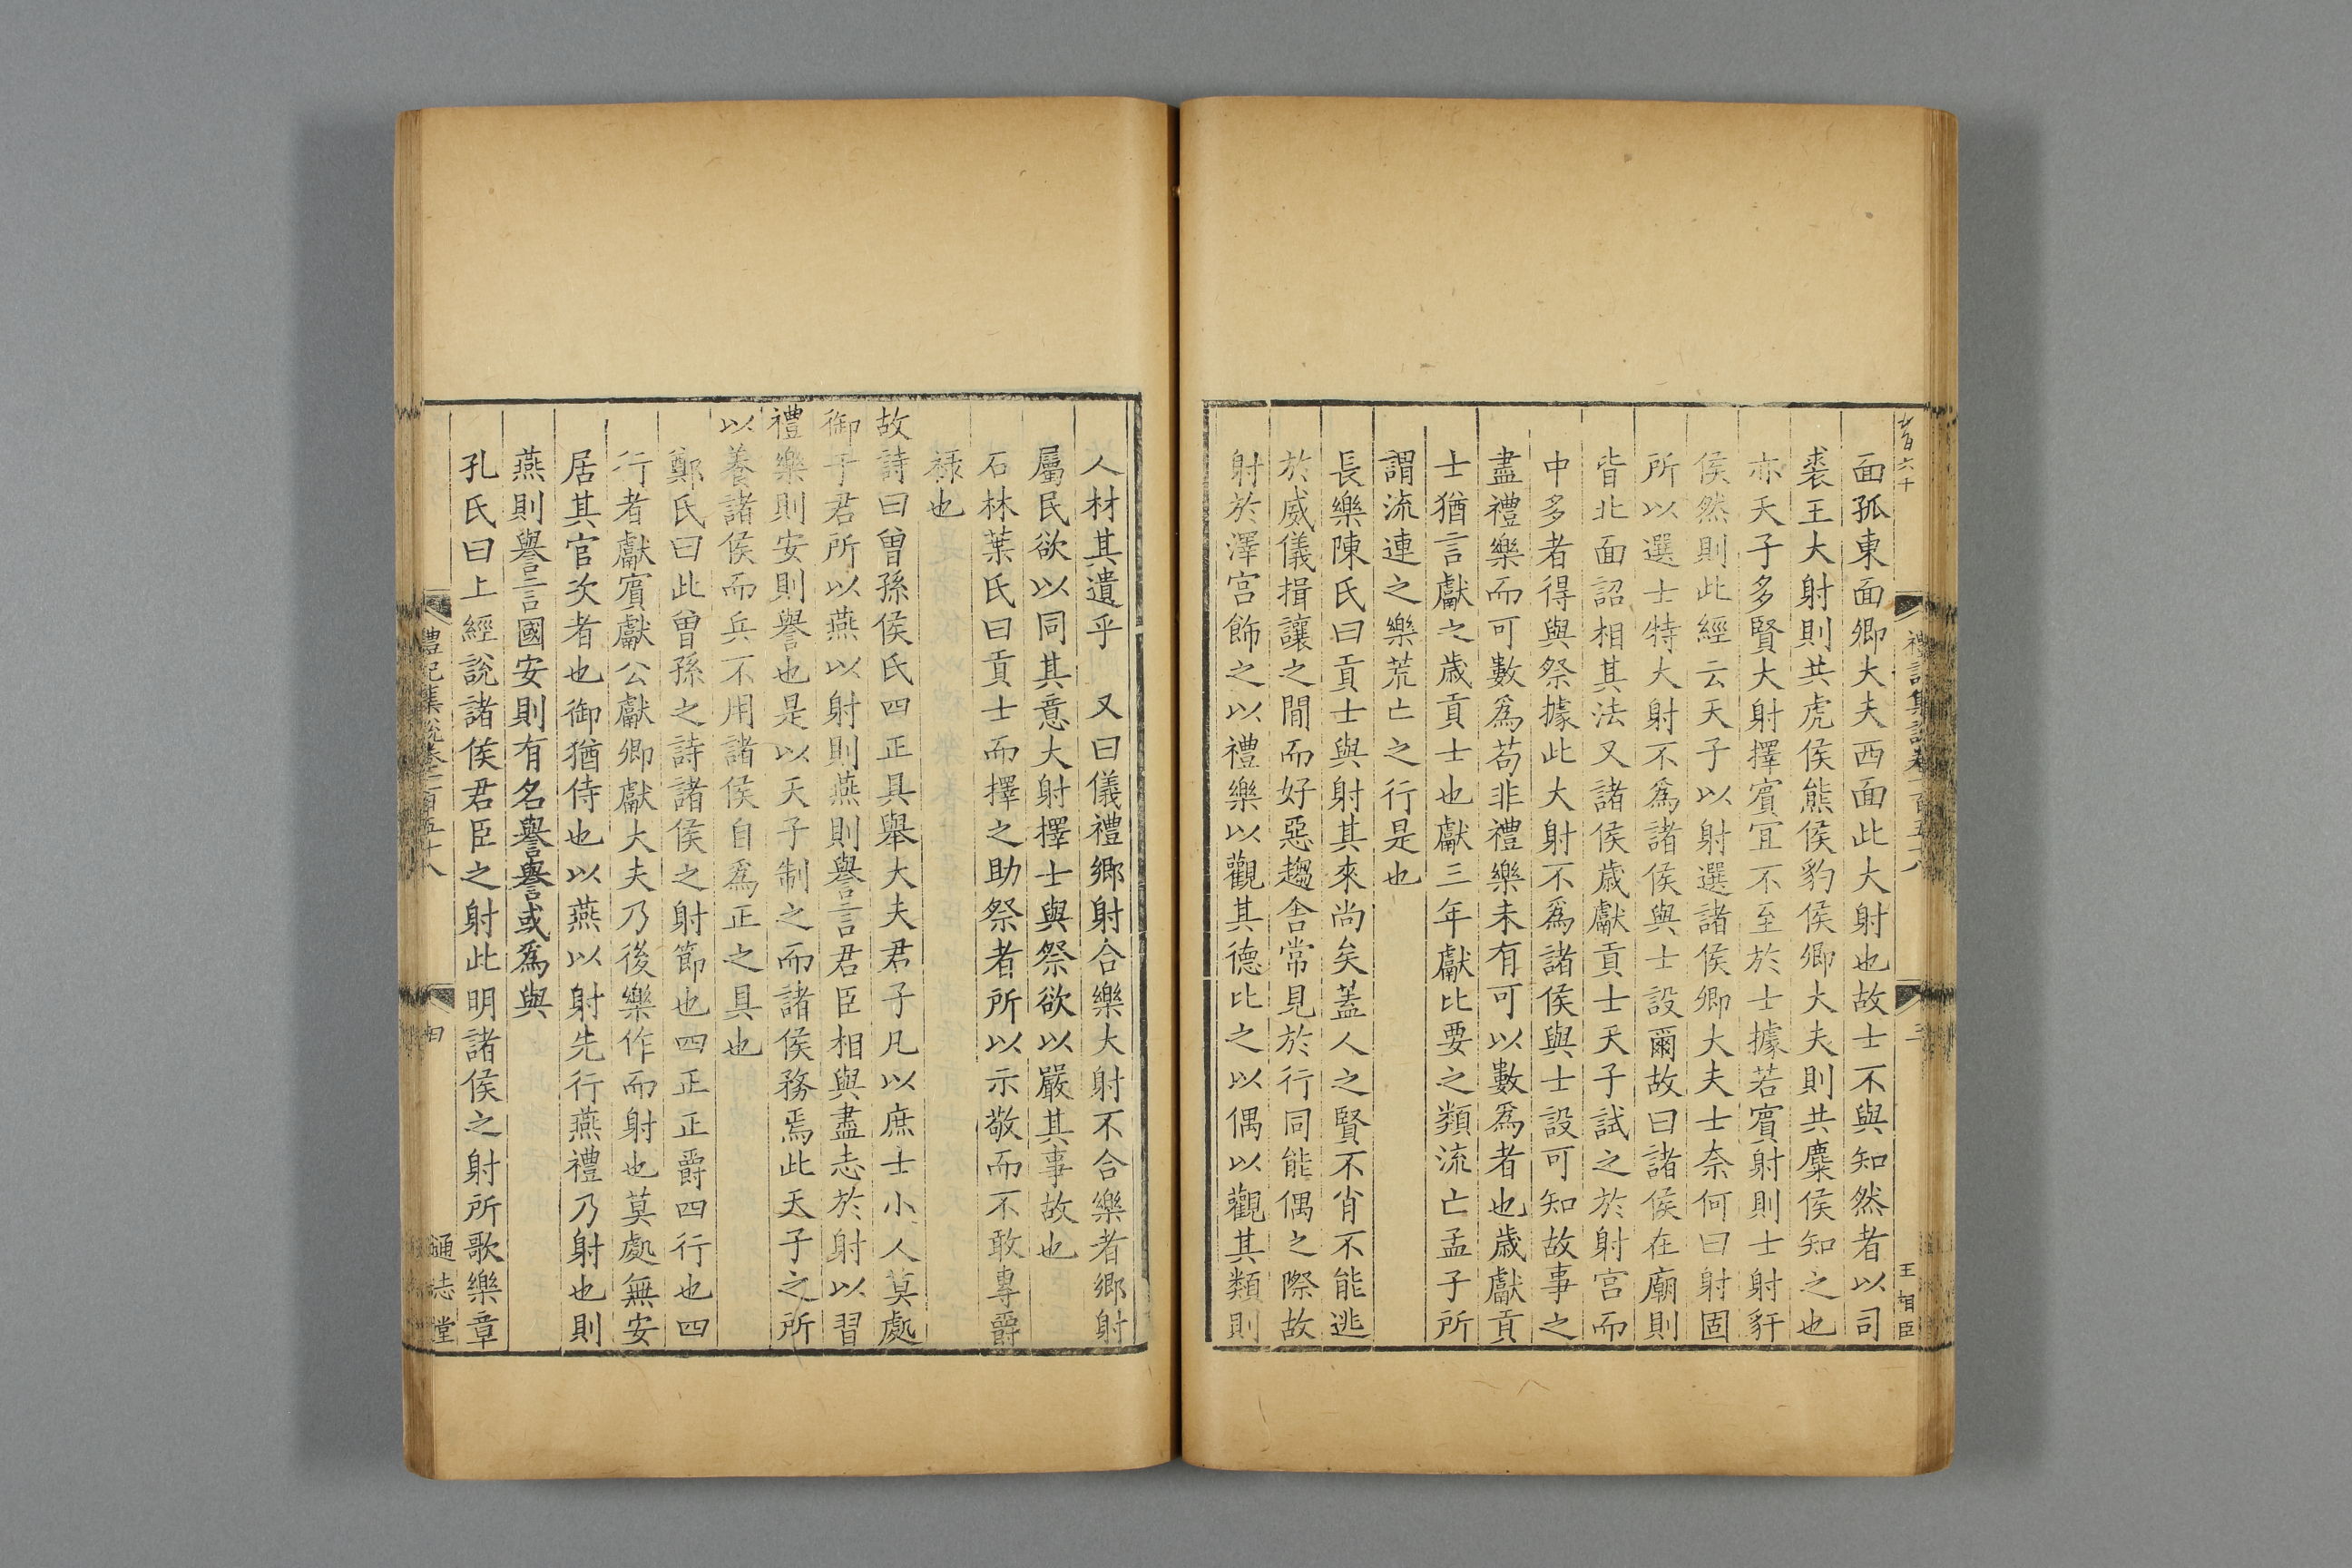 面孤東面卿大夫西面此大射也故士不與知然者以司
裘王大射則共虎侯熊侯豹侯卿大夫則共麋侯知之也
亦天子多賢大射擇賔宜不至於士據若賔射則士射豻
侯然則此經云天子以射選諸侯卿大夫士奈何曰射固
所以選士特大射不爲諸侯與士設爾故曰諸侯在廟則
皆北面詔相其法又諸侯歲獻貢士天子試之於射宫而
中多者得與祭據此大射不爲諸侯與士設可知故事之
盡禮樂而可數爲苟非禮樂未有可以數爲者也歲獻貢
士猶言獻之歲貢士也獻三年獻比要之類流亡孟子所
謂流連之樂荒亡之行是也
長樂陳氏曰貢士與射其來尚矣蓋人之賢不肖不能逃
於威儀揖讓之間而好惡趨舍常見於行同能偶之際故
射於澤宫飾之以禮樂以觀其德比之以偶以觀其類則
王相臣
人材其遺乎　又曰儀禮鄉射合樂大射不合樂者鄉射
屬民欲以同其意大射擇士與祭欲以嚴其事故也
石林葉氏曰貢士而擇之助祭者所以示敬而不敢專爵
禄也
故詩曰曾孫侯氏四正具舉大夫君子凡以庶士小人莫處
御于君所以燕以射則燕則譽言君臣相與盡志於射以習
禮樂則安則譽也是以天子制之而諸侯務焉此天子之所
以養諸侯而兵不用諸侯自爲正之具也
鄭氏曰此曾孫之詩諸侯之射節也四正正爵四行也四
行者獻賔獻公獻卿獻大夫乃後樂作而射也莫處無安
居其官次者也御猶侍也以燕以射先行燕禮乃射也則
燕則譽言國安則有名譽譽或爲與
孔氏曰上經說諸侯君臣之射此明諸侯之射所歌樂章
禮記集說卷一百五十八
四
通志堂